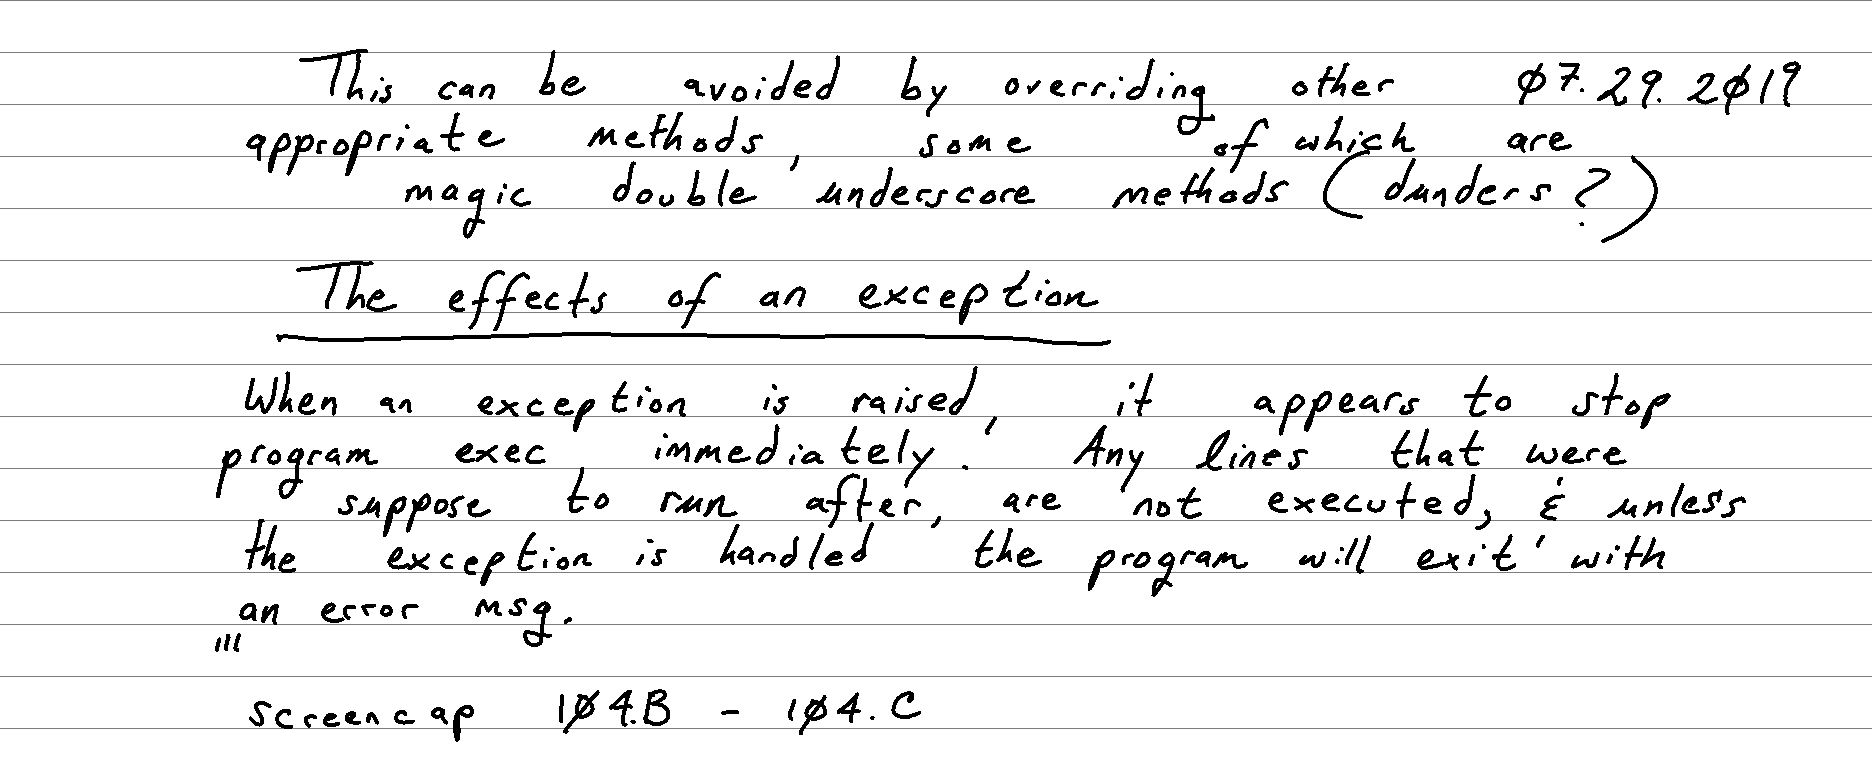 This can be avoided by overriding other 07.29.2019
appropriate methods, some of which are
magic double underscore methods (dunders?)
The effects of an exception
When an exception is raised, it appears to stop
program exec immediately. Any lines that were
suppose to run after, are not executed, & unless
the exception is handled the program will exit with
an error msg.
"'
screencap 104.B - 104.C